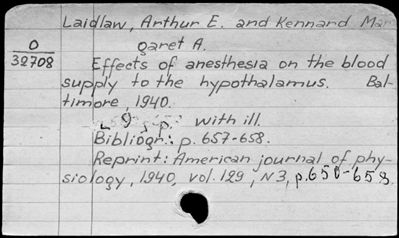 Laidlaw, Arthur E. and Kennard Mar
garet A.
O
32708
Effects of anesthesia on the blood
supply to the hypothalamus. Bal-
timore, 1940.
[9] p. with ill.
Bibliogr.: p. 657-658.
Reprint: American journal of phy-
siology, 1940, vol. 129, N3, p. 650-658.